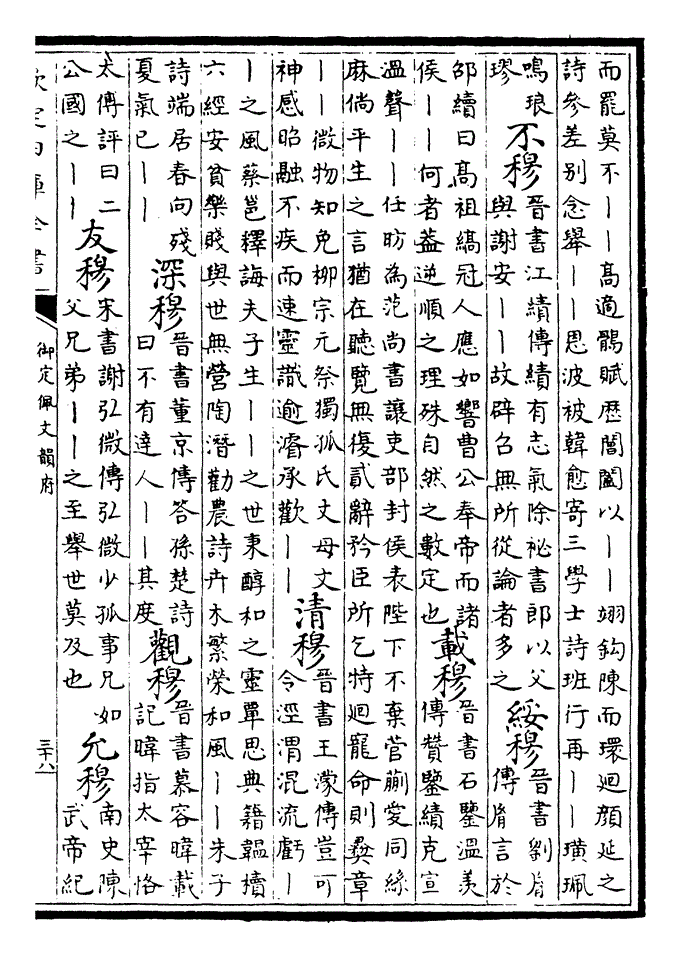 而罷莫不丨丨高適鶻賦歷閶闔以丨丨翊鈎陳而環迴顔延之
詩參差别念舉丨丨恩波被韓愈寄三學士詩班行再丨丨璜珮
鳴琅
璆
不穆
晉書江績傳績有志氣除祕書郎以父
與謝安丨丨故辟召無所從論者多之
綏穆
晉書劉胤
傳胤言於
邵續曰髙祖縞冠人應如響曹公奉帝而諸
侯丨丨何者葢逆順之理殊自然之數定也
載穆
晉書石鑒溫羨
傳贊鑒績克宣
溫聲丨丨任昉為范尚書讓吏部封侯表陛下不棄菅蒯愛同絲
麻倘平生之言猶在聽覽無復貳辭矜臣所乞特迴寵命則彝章
丨丨微物知免栁宗元祭獨孤氏丈母文
神感昭融不疾而速靈識逾濬承歡丨丨
清穆
晉書王濛傳豈可
令涇渭混流虧丨
丨之風蔡邕釋誨夫子生丨丨之世秉醇和之靈單思典籍韞櫝
六經安貧樂賤與世無營陶潛勸農詩卉木繁榮和風丨丨朱子
詩端居春向殘
夏氣已丨丨
深穆
晉書董京傳答孫楚詩
曰不有達人丨丨其度
觀穆
晉書慕容暐載
記暐指太宰恪
太傅評曰二
公國之丨丨
友穆
宋書謝弘微傳弘微少孤事兄如
父兄弟丨丨之至舉世莫及也
允穆
南史陳
武帝紀
欽定四庫全書
御定佩文韻府
三十八